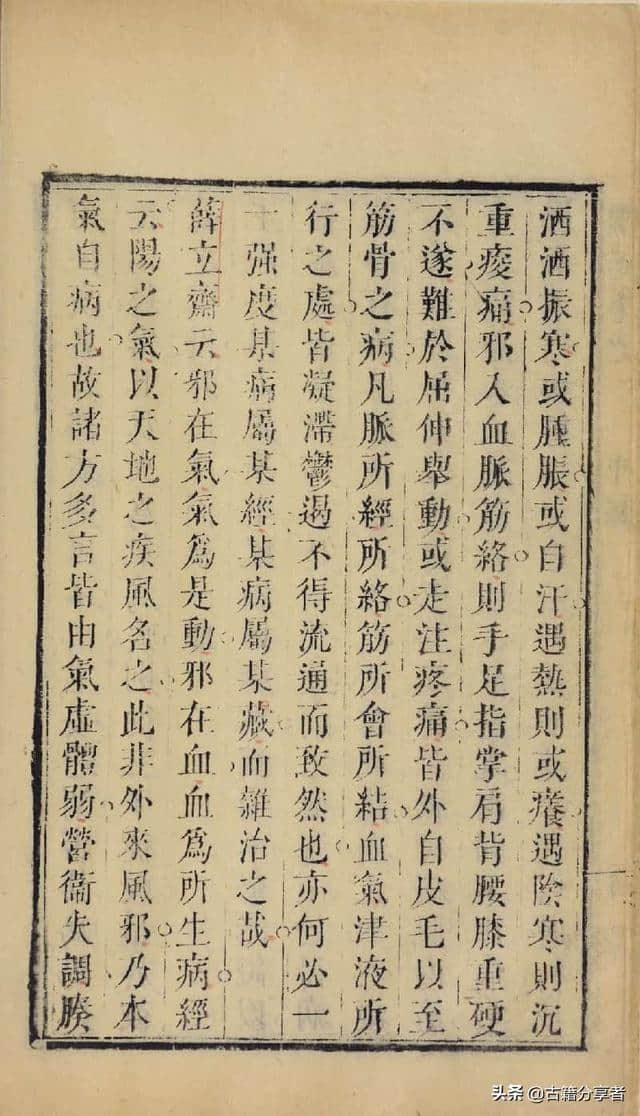 洒洒振寒或腫脹或自汗遇熱則或癢遇陰寒則沉
重痠痛邪入血脈筋絡則手足指掌肩背腰膝重硬
不遂難於屈伸舉動或走注疼痛皆外自皮毛以至
筋骨之病凡脈所經所絡筋所會所粘血氣津液所
行之處皆凝滯鬱遏不得流通而致然也亦何必一
一强度某病屬某經某病屬某藏而雜治之哉
薛立齋云邪在氣氣爲是動邪在血血爲所生病經
云陽之氣以天地之疾風名之此非外來風邪乃本
氣自病也故諸方多言皆由氣虛體弱營衞失調腠
头条 @古籍分享者